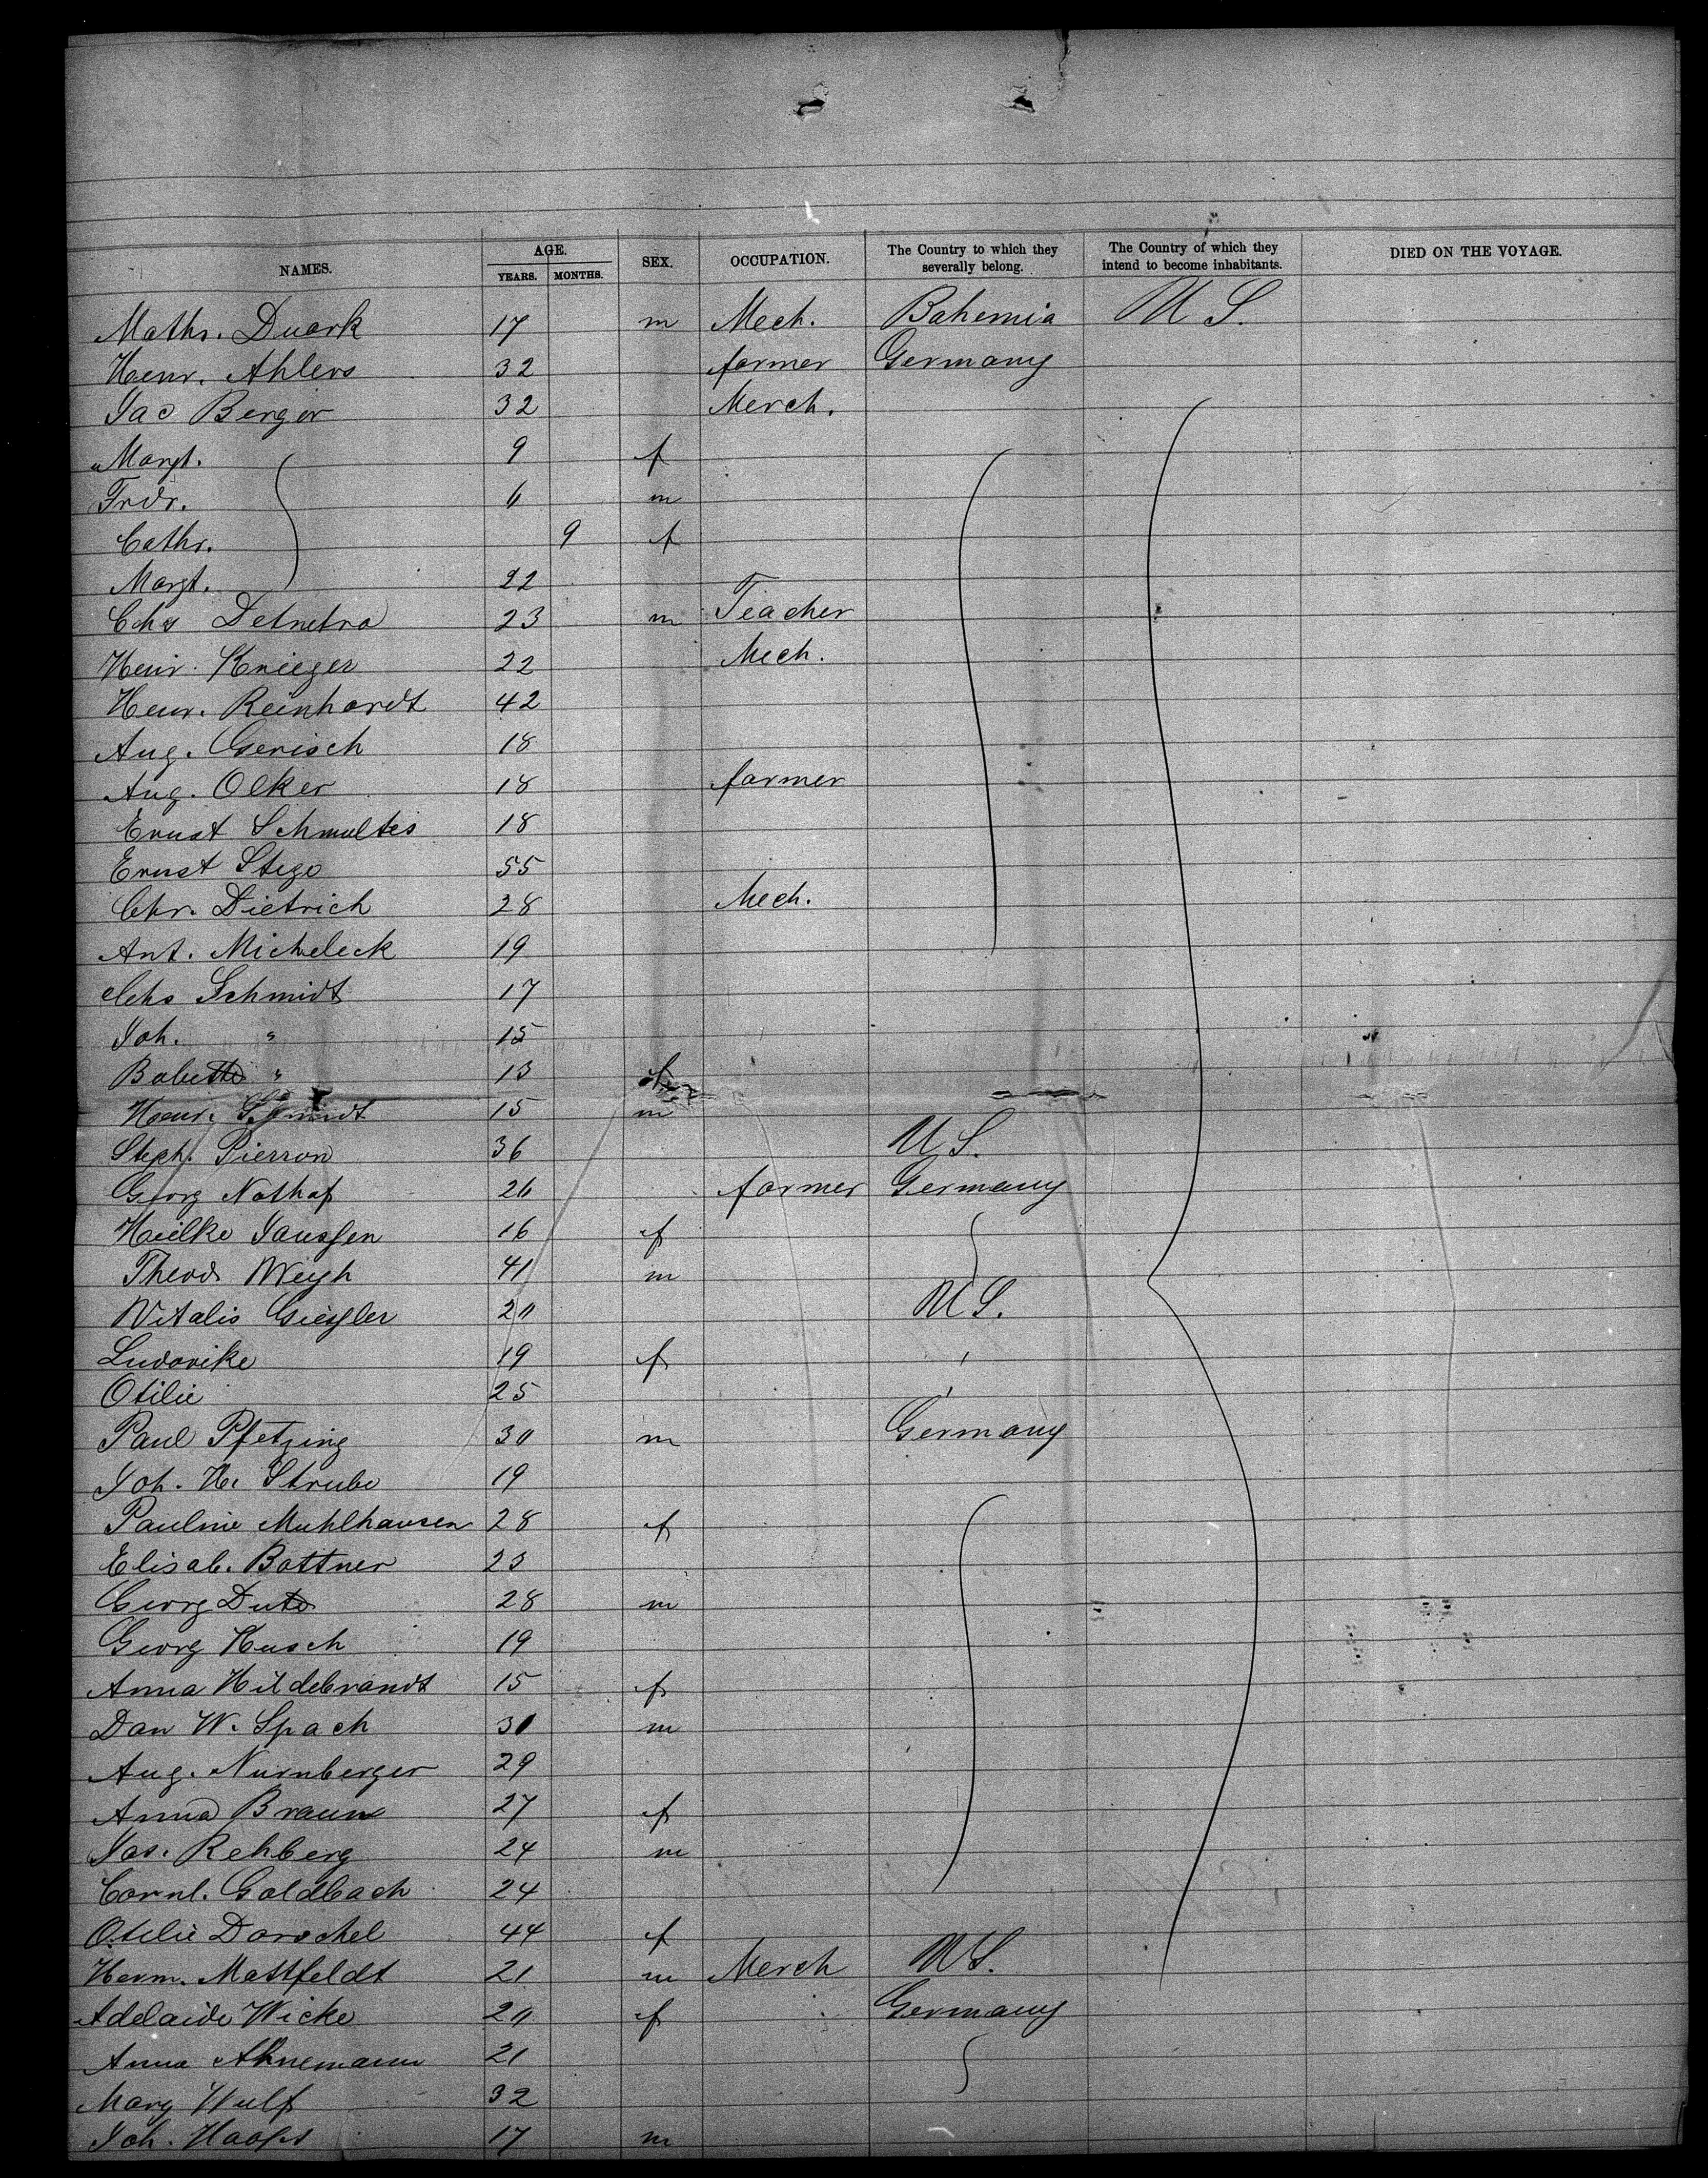 NAMES. AGE. YEARS. MONTHS. SEX. OCCUPATION. The Country to which they severally belong. The Country of which they intend to become inhabitants. DIED ON THE VOYAGE.
Maths. Duark 17 m Mech. Bohemia U S.
Henr. Ahlers 32 farmer Germany
Jac Berger 32 Merch.
Margt. 9 f
Frdr. 6 m
Cathr. 9 f
Margt. 22
Chs 23 m Teacher
Heinr. Krieger 22 Mech.
Henr. Reinhardt 42
Aug. Gerisch 18
Aug. Olker 18 farmer
Ernst Schmultes 18
Ernst 55
Chr. Dietrich 28 Mech.
Ant. Micheleck 19
Chs Schmidt 17
Joh. " 15
Babette " 13 f
Henr. Schmidt 15 m
Steph. Pierron 36 U S.
Georg Nothaf 26 farmer Germany
Hielke Janssen 16 f
Theod. Weyh 41 m
Vitalis Giessler 20 U S.
Ludovike 19 f "
Otilie 25 "
Paul Pfetzing 30 m Germany
Joh. H. Strube 19
Pauline Muhlhausen 28 f
Elisab. Bottner 23
Georg 28 m
Georg Kusch 19
Anna Hildebrandt 15 f
Dan W. Spach 30 m
Aug. Nurnberger 29
Anna Braun 27 f
Jos. Rehberg 24 m
Cornl. Goldbach 24
Otilie Dorschel 44 f
Herm. Mattfeldt 21 m Merch U S.
Adelaide Wicke 20 f Germany
Anna Ahnemann 21
Marg Wulf 32
Joh. Haops 17 m